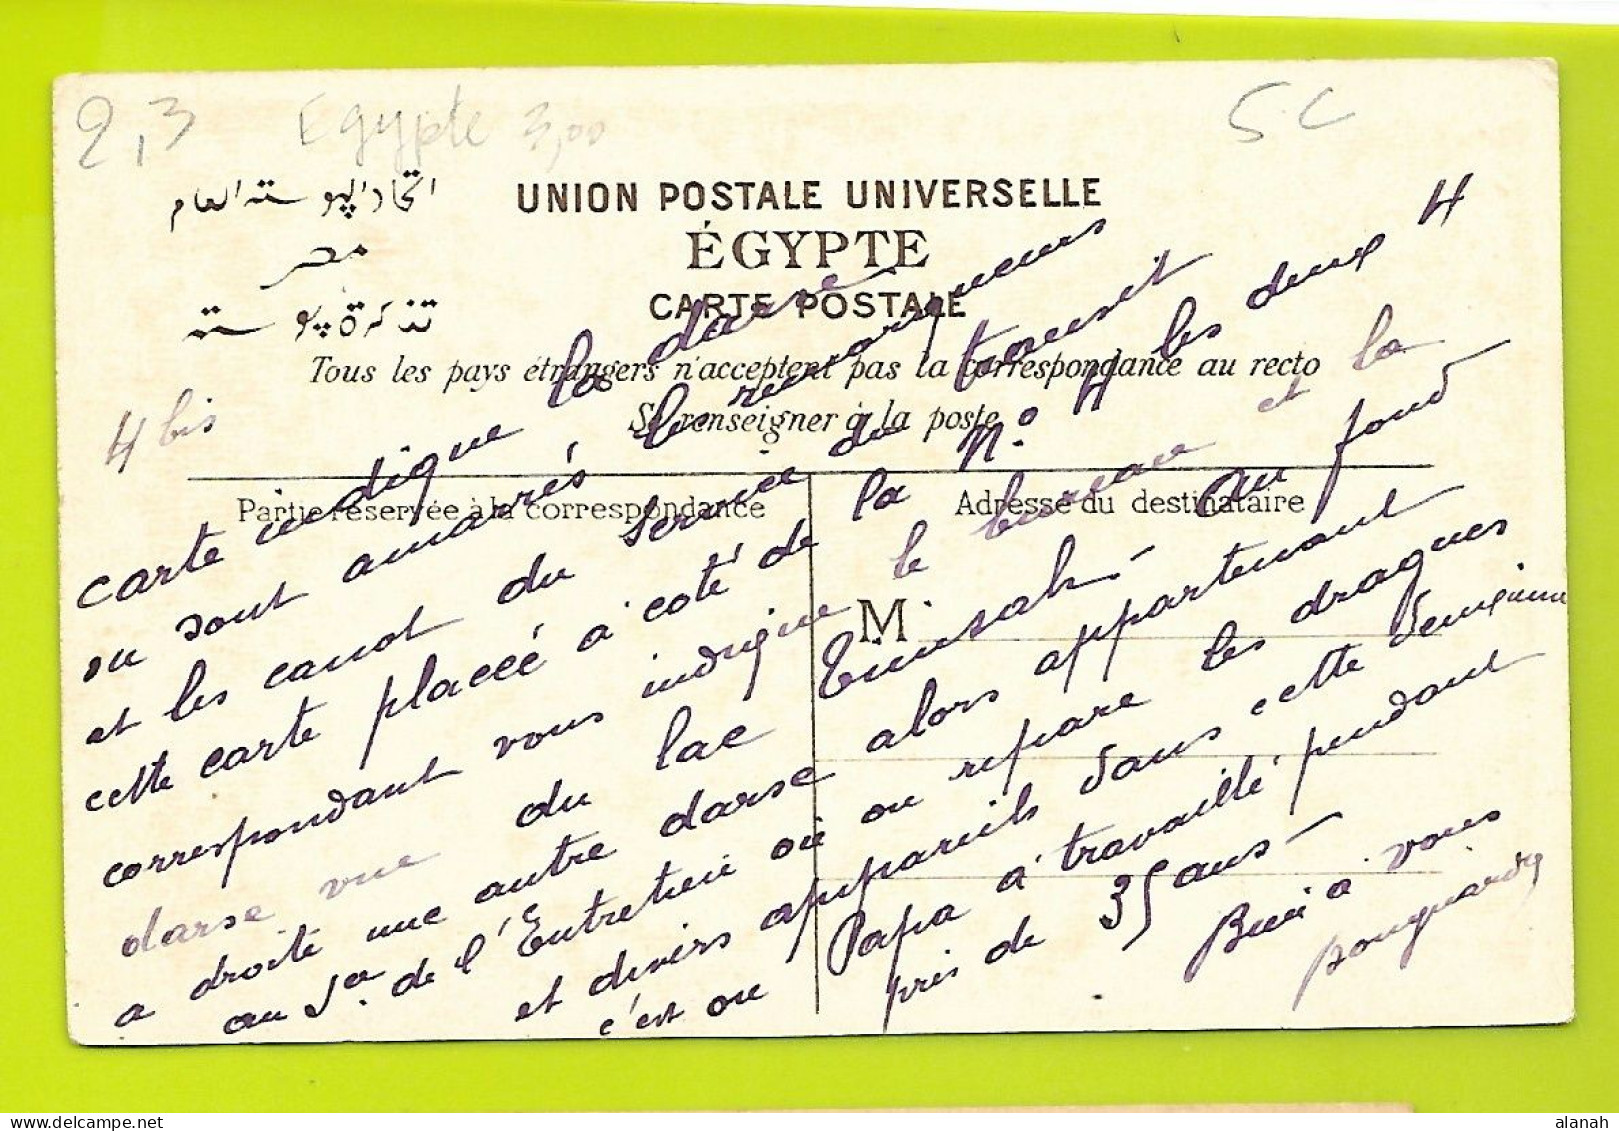 2,3 Egypte 3,00 5 C
اتحاد البوسته العام
مصر
تذكرة بوسته
UNION POSTALE UNIVERSELLE
ÉGYPTE
CARTE POSTALE
Tous les pays étrangers n'acceptent pas la correspondance au recto
Se renseigner à la poste
Partie réservée à la correspondance
Adresse du destinataire
M
4 bis
4
carte indique la darse
ou sont amarrés les remorqueurs
et les canot du service du transit
cette carte placée à coté de la N° 4 les deux
correspondant vous indique le bureau et la
darse vue du lac Timsah. au fond
a droite une autre darse alors appartenant
au Sce de l'Entretien où on repare les dragues
et divers appareils dans cette deuxieme
c'est ou Papa à travaillé pendant
près de 35 ans
Bien a vous